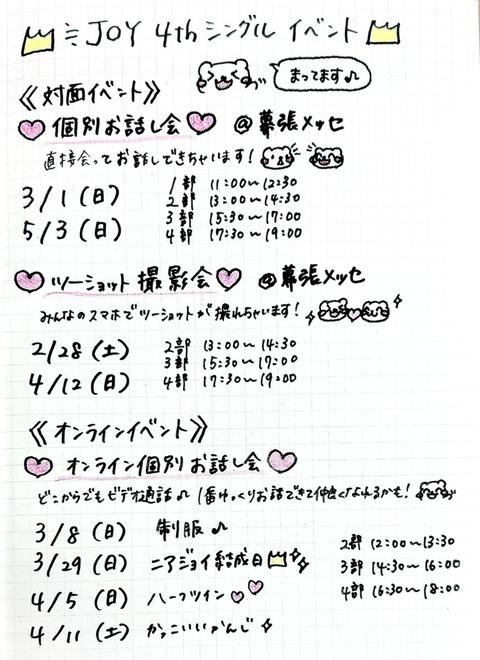 ニJOY 4thシングル イベント
まってます♪
《対面イベント》
個別お話し会 @幕張メッセ
直接会ってお話しできちゃいます！
3/1（日）
5/3（日）
1部 11:00〜12:30
2部 13:00〜14:30
3部 15:30〜17:00
4部 17:30〜19:00
ツーショット撮影会 @幕張メッセ
みんなのスマホでツーショットが撮れちゃいます！
2/28（土）
4/12（日）
2部 13:00〜14:30
3部 15:30〜17:00
4部 17:30〜19:00
《オンラインイベント》
オンライン個別お話し会
どこからでもビデオ通話♪ 1番ゆっくりお話できて仲良くなれるかも！
3/8（日） 制服♪
3/29（日） ニアジョイ結成日
4/5（日） ハーフツイン
4/11（土） かっこいいかんじ
2部 12:00〜13:30
3部 14:30〜16:00
4部 16:30〜18:00